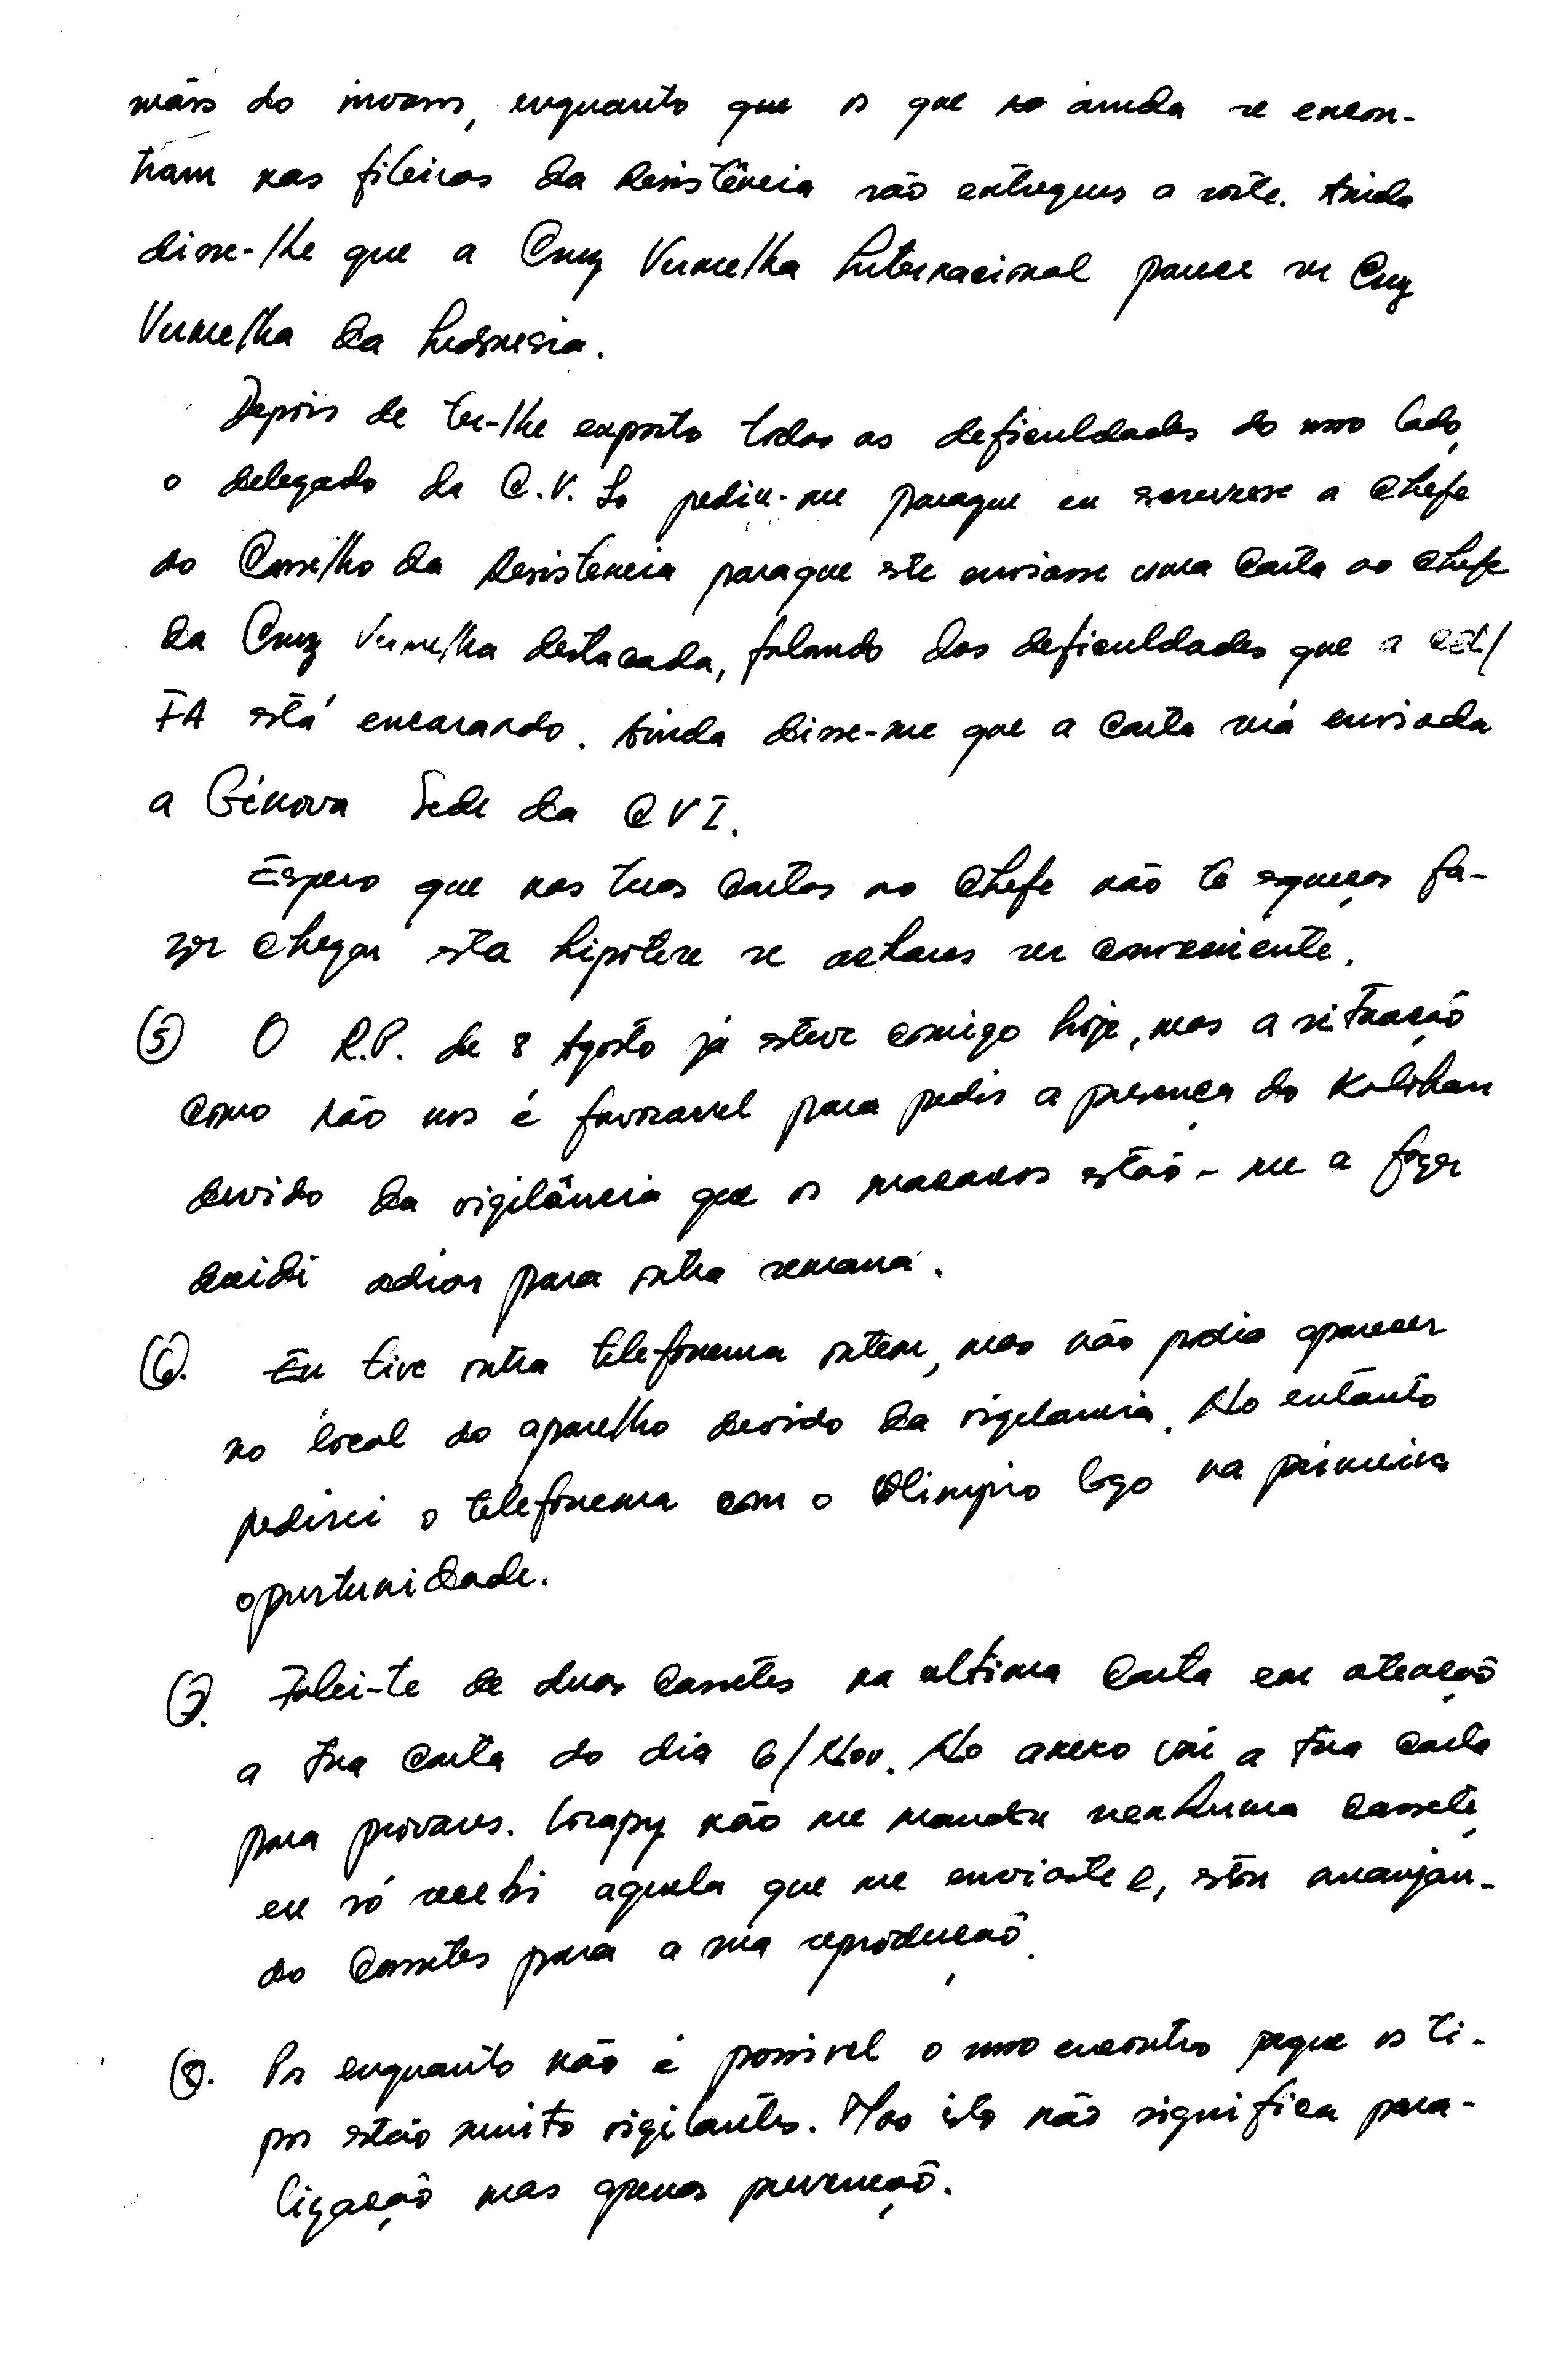 mãos do invasor, enquanto que os que ainda se encon-
tram nas fileiras da Resistência são entregues a sorte. Ainda
disse-lhe que a Cruz Vermelha Internacional parece ser Cruz
Vermelha da Indonesia.
Depois de ter-lhe exposto todas as deficuldades do nosso lado,
o delegado da C.V. pediu-me paraque eu escrevesse a Chefe
do Conselho da Resistencia paraque este enviasse uma Carta ao Chefe
da Cruz Vermelha destacada, falando das deficuldades que a
FA está encarando. Ainda disse-me que a Carta será enviada
a Génova Sede da CVI.
Espero que nas tuas Cartas ao Chefe não te esqueças fa-
zer chegar esta hipótese se achares ser conveniente.
(5) O R.P. de 8 Agosto já esteve comigo hoje, mas a situação
como não nos é favoravel para pedir a presença do Kalohan
devido da vigilância que os macacos estão-me a fazer
decidi adiar para outra semana.
(6). Eu tive outra telefonema ontem, mas não podia aparecer
no local do aparelho devido da vigilancia. No entanto
pedirei o telefonema com o Olimpio logo na primeira
oportunidade.
(7). Falei-te de duas Cassetes na ultima Carta em atenção
a tua Carta do dia 6/Nov. No anexo vai a tua Carta
para provares. não me mandou nenhuma Cassete,
eu só recebi aquela que me enviaste e, estou arranjan-
do Cassetes para a sua reprodução.
(8). Por enquanto não é possivel o nosso encontro porque os ti-
pos estão muito vigilantes. Mas isto não significa para-
lização mas apenas prevenção.